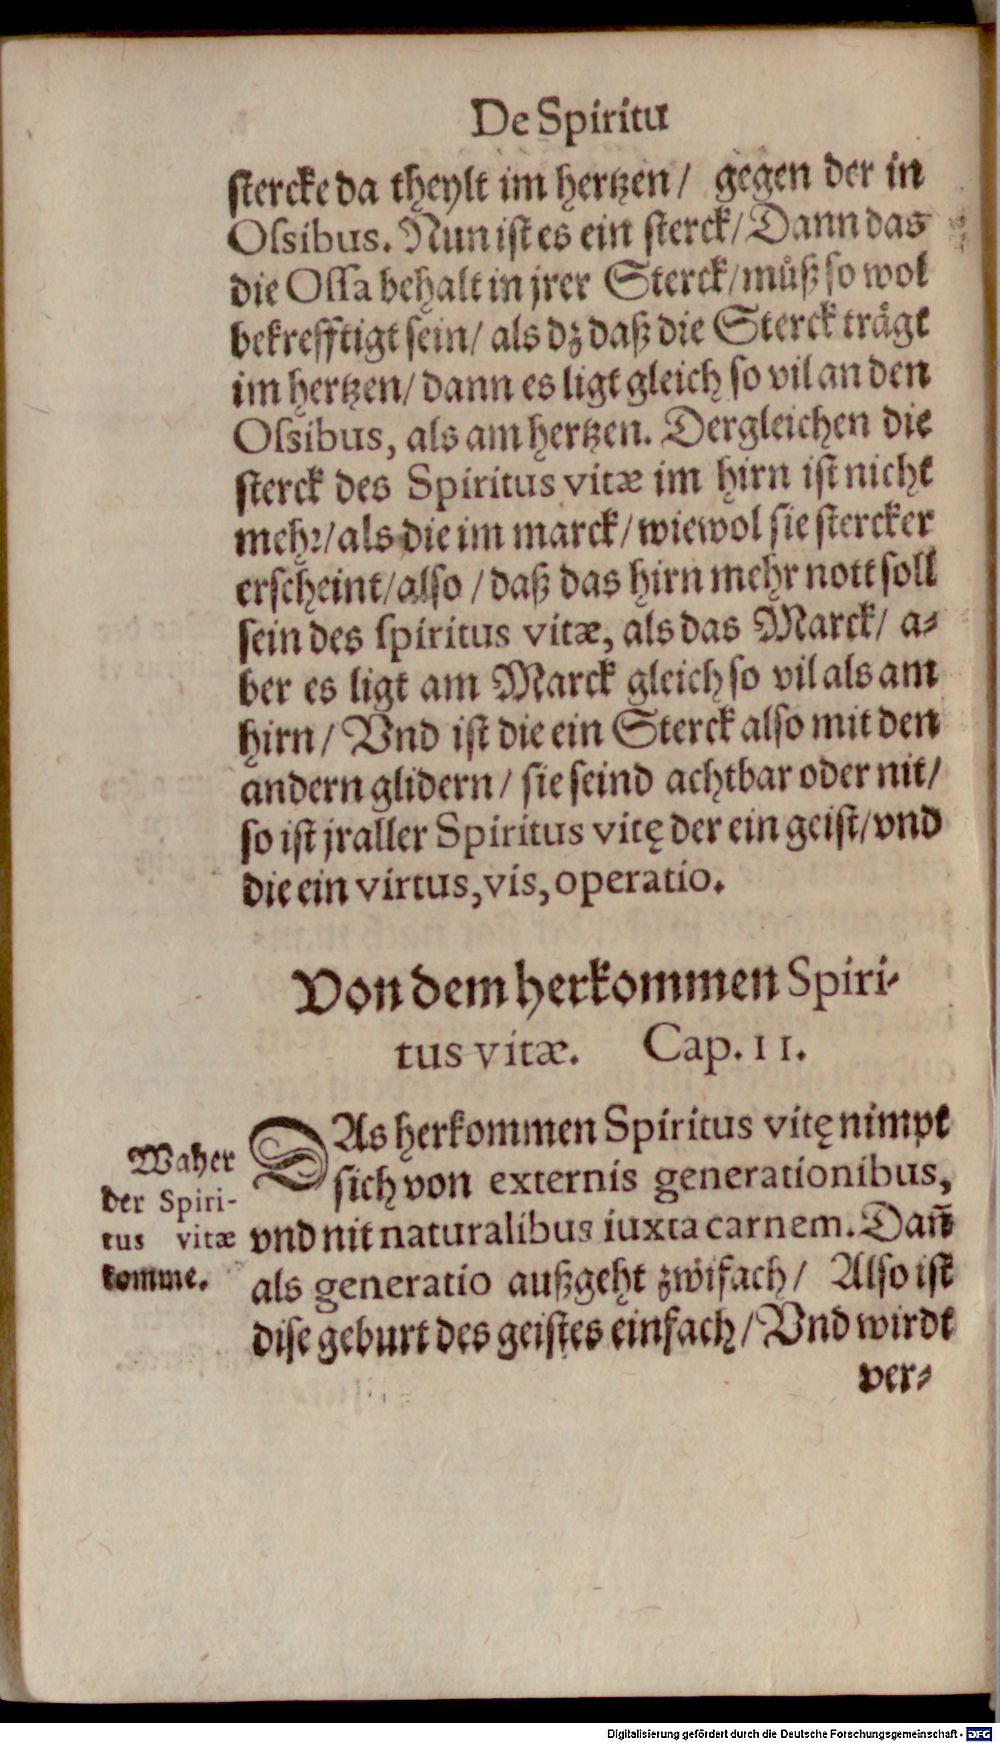 De Spiritu
stercke da theylt im hertzen / gegen der in
Oſsibus. Nun ist es ein sterck / Dann das
die Oſſa behalt in jrer Sterck / müß so wol
bekrefftigt sein / als dz daß die Sterck trägt
im hertzen / dann es ligt gleich so vil an den
Oſsibus, als am hertzen. Dergleichen die
sterck des Spiritus vitæ im hirn ist nicht
mehr / als die im marck / wiewol sie stercker
erscheint / also / daß das hirn mehr nott soll
sein des spiritus vitæ, als das Marck / a-
ber es ligt am Marck gleich so vil als am
hirn / Vnd ist die ein Sterck also mit den
andern glidern / sie seind achtbar oder nit /
so ist jr aller Spiritus vitę der ein geist / vnd
die ein virtus, vis, operatio.
Von dem herkommen Spiri-
tus vitæ. Cap. II.
Waher
der Spiri-
tus vitæ
komme.
DAs herkommen Spiritus vitę nimpt
sich von externis generationibus,
vnd nit naturalibus iuxta carnem. Dañ
als generatio außgeht zwifach / Also ist
dise geburt des geistes einfach / Vnd wirdt
ver-
Digitalisierung gefördert durch die Deutsche Forschungsgemeinschaft - DFG